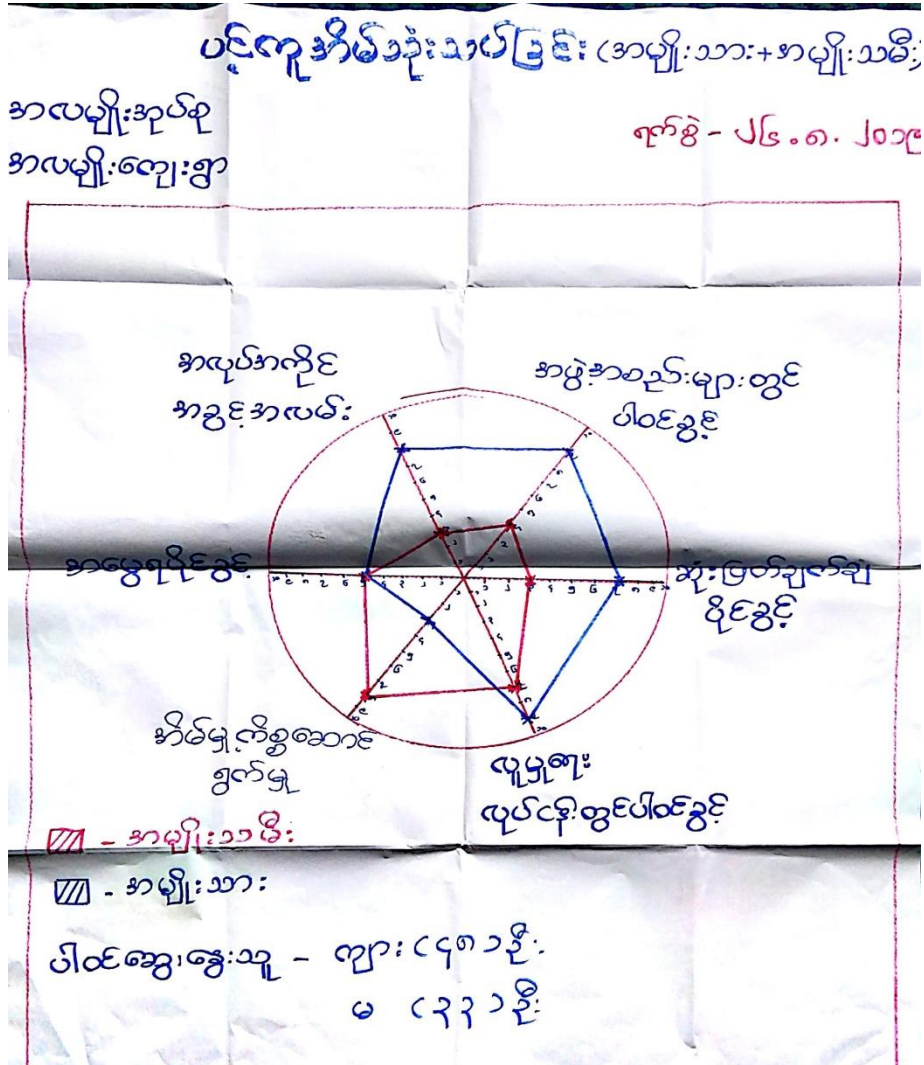 ပင့်ကူအိမ်သုံးသပ်ခြင်း (အမျိုးသား+အမျိုးသမီး)
အလမျိုးအုပ်စု
အလမျိုးကျေးရွာ
ရက်စွဲ - ၂၆.၈.၂၀၁၉
အလုပ်အကိုင်
အခွင့်အလမ်း
အဖွဲ့အစည်းများတွင်
ပါဝင်ခွင့်
အမွေရပိုင်ခွင့်
ဆုံးဖြတ်ချက်ချ
ပိုင်ခွင့်
အိမ်မှုကိစ္စဆောင်
ရွက်မှု
လူမှုရေး
လုပ်ငန်းတွင်ပါဝင်ခွင့်
- အမျိုးသမီး
- အမျိုးသား
ပါဝင်ဆွေးနွေးသူ - ကျား (၄၈) ဦး
မ (၃၃) ဦး